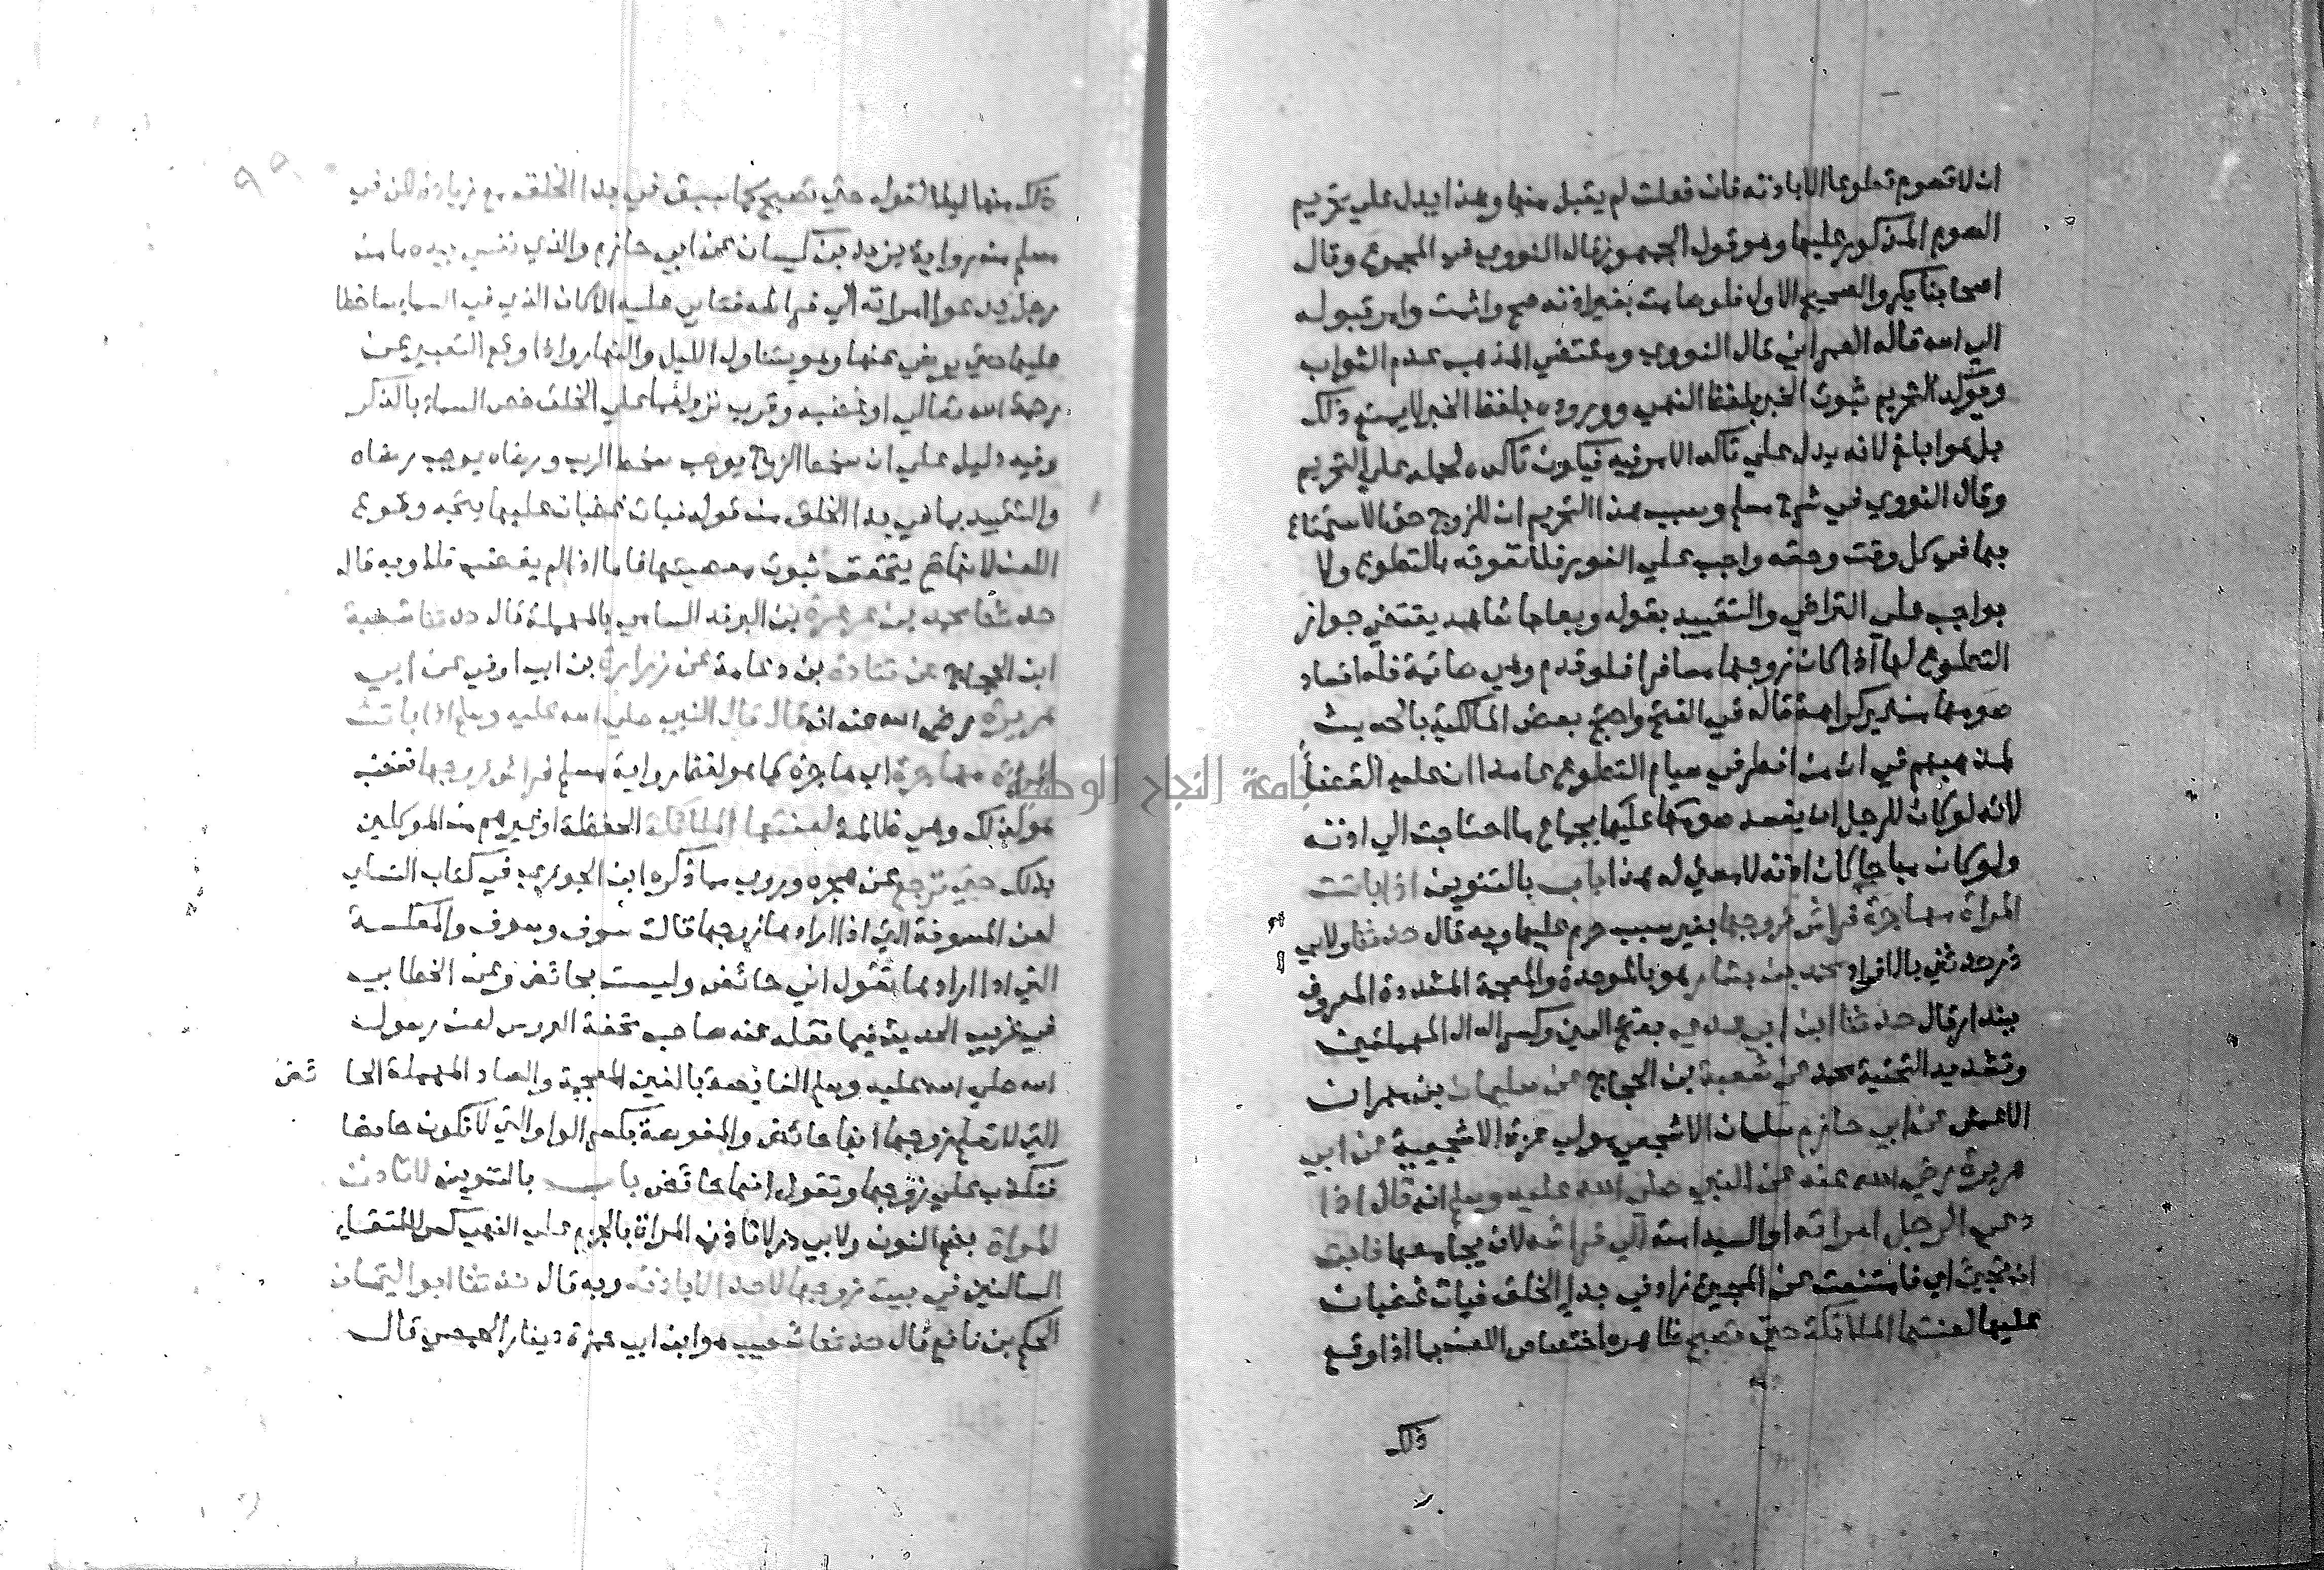 ان لا تصوم تطوعا الا باذنه فان فعلت لم يقبل منها وهذا يدل علي تحريم
الصوم المذكور عليها وهو قول الجمهور قال النووي في المجموع وقال
اصحابنا يكره والصحيح الاول فلو صامت بغير اذنه صح واثمت وامر قبوله
الي الله قاله العمراني قال النووي ومقتضي المذهب عدم الثواب
ويوكد التحريم ثبوت الخبر بلفظ النهي ووروده بلفظ الخبر لا يمنع ذلك
بل هو ابلغ لانه يدل علي تاكد الامر فيه فيكون تاكده بحمله علي التحريم
وقال النووي في شرح مسلم وسبب هذا التحريم ان للزوج حق الاستمتاع
بها في كل وقت وحقه واجب علي الفور فلا تفوته بالتطوع ولا
بواجب علي التراخي والتقييد بقوله وبعلها شاهد يقتضي جواز
التطوع لها اذا كان زوجها مسافرا فلو قدم وهي صائمة فله افساد
صومها من غير كراهة قاله في الفتح واحتج بعض المالكية بالحديث
لمذهبهم في ان من افطر في صيام التطوع عامدا ان عليه القضاء
لانه لو كان للرجل ان يفسد صومها عليها بجماع ما احتاجت الي اذنه
ولو كان مباحا كان اذنه لا معني له هذا باب بالتنوين اذا باتت
المراة مهاجرة فراش زوجها بغير سبب حرم عليها وبه قال حدثنا ولابي
ذر حدثني بالافراد محمد بن بشار هو بالموحدة والمعجمة المشددة المعروف
بندار قال حدثنا ابن ابي عدي بفتح العين وكسر الدال المهملتين
وتشديد التحتية محمد عن شعبة بن الحجاج عن سليمان بن مهران
الاعمش عن ابي حازم سلمان الاشجعي مولي عزة الاشجعية عن ابي
هريرة رضي الله عنه عن النبي صلي الله عليه وسلم انه قال اذا
دعي الرجل امراته او السيد امته الي فراشه لان يجامعها فابت
ان تجيئ اي فامتنعت عن المجيئ زاد في بدإ الخلق فبات غضبان
عليها لعنتها الملائكة حتي تصبح ظاهره اختصاص اللعن بما اذا وقع
ذلك
ذلك منها ليلا لقوله حتي تصبح كما سبق في بدا الخلق مع زيادة لكن في
مسلم من رواية يزيد بن كيسان عن ابي حازم والذي نفسي بيده ما من
رجل يدعوا امراته الي فراشه فتابي عليه الا كان الذي في السماء ساخطا
عليها حتي يرضي عنها وهو يتناول الليل والنهار واذا وقع التعبير عن
رحمة الله تعالي او غضبه وقرب نزولهما علي الخلق خص السماء بالذكر
وفيه دليل علي ان سخط الزوج يوجب سخط الرب ورضاه يوجب رضاه
والتقييد بما في بدا الخلق من قوله فبات غضبان عليها يتجه وقوع
اللعن لانها يتحقق ثبوت معصيتها فاما اذا لم يغضب فلا وبه قال
حدثنا محمد بن عرعرة بن البرند السامي بالمهملة قال حدثنا شعبة
ابن الحجاج عن قتادة بن دعامة عن زرارة بن ابي اوفي عن ابي
هريرة رضي الله عنه انه قال قال النبي صلي الله عليه وسلم اذا باتت
المراة مهاجرة اي هاجرة كما هو لفظ رواية مسلم فراش زوجها فغضب
هو لذلك وهي ظالمة لعنتها الملائكة الحفظة او غيرهم من الموكلين
بذلك حتي ترجع عن هجره وروي مما ذكره ابن الجوزي في كتاب النساء
لعن المسوفة التي اذا ارادها زوجها قالت سوف وسوف والمعكسة
التي اذا ارادها تقول اني حائض وليست بحائض وعن الخطابي
في غريب الحديث فيما نقله عنه صاحب تحفة العروس لعن رسول
الله صلي الله عليه وسلم الغائصة بالغين المعجمة والصاد المهملة الحائض
التي لا تعلم زوجها انها حائض والمغوصة بكسر الواو التي لا تكون حائضا
فتكذب علي زوجها وتقول انها حائض باب بالتنوين لا تاذن
المراة بضم النون ولابي ذر لا تاذن المراة بالجزم علي النهي كسر لالتقاء
الساكنين في بيت زوجها لاحد الا باذنه وبه قال حدثنا ابو اليمان
الحكم بن نافع قال حدثنا شعيب هو ابن ابي حمزة دينار الحمصي قال
جامعة النجاح الوطنية